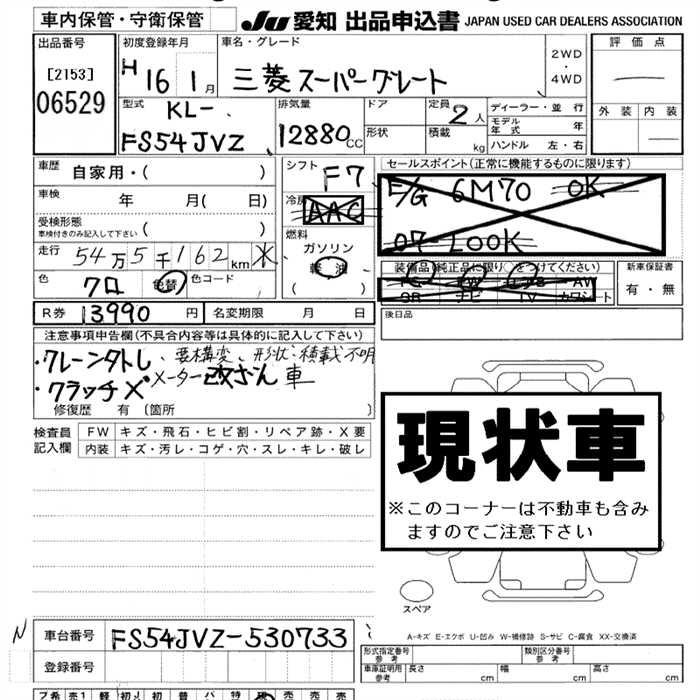 車内保管・守衛保管 JU 愛知 出品申込書 JAPAN USED CAR DEALERS ASSOCIATION
出品番号 初度登録年月 車名・グレード 2WD ・ 4WD 評価点
[2153] H 16 年 1 月 三菱スーパーグレート
06529 外装 内装
型式 KL- 排気量 ドア 定員 2 人 ディーラー・並 行
FS54JVZ 12880 CC 形状 積載 kg モデル年式 年
ハンドル 左・右
車歴 自家用・( ) シフト F7 セールスポイント(正常に機能するものに限ります)
車検 年 月( 日) 冷房 AAC F/G 6M70 OK
受検形態 車検付きのみ記入して下さい ( ) 燃料 07-LOOK
走行 54万5千162km ガソリン 軽油 ( )
装備品(純正品に限り○をつけてください) 新車保証書
色 クロ 色替 色コード PW AW 有・無
SR ナビ TV カワシート
R券 13990 円 名変期限 月 日 後日品
注意事項申告欄(不具合内容等は具体的に記入して下さい)
・クレーンタトし、要構変、形状・積載不明
・クラッチ× メーター改ざん車
修復歴 有 〔箇所 〕
検査員記入欄 FW キズ・飛石・ヒビ割・リペア跡・X要
内装 キズ・汚レ・コゲ・穴・スレ・キレ・破レ
現状車
※このコーナーは不動車も含み
ますのでご注意下さい
スペア
A-キズ E-エクボ U-凹み W-補修跡 S-サビ C-腐食 XX-交換済
N 車台番号 FS54JVZ-530733
登録番号
形式指定番号 参考 類別区分番号 参考
車庫証明用 参考 長さ 幅 高さ